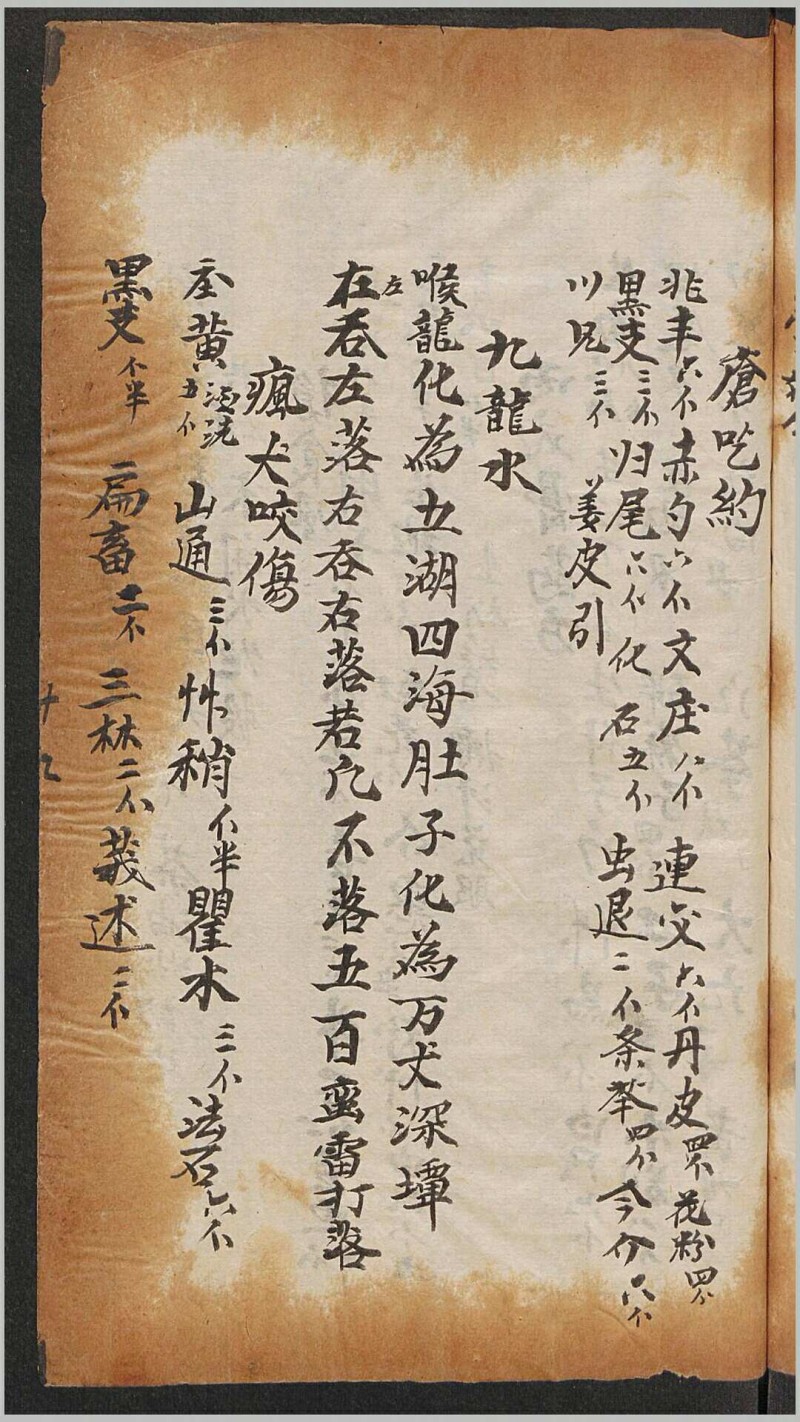 瘡吃約
非丰六个 赤勺六个 文庄八个 連交六个 丹皮四个 花粉四个
黑支三个 归尾六个 化石五个 虫退二个 条芩四个 今分六个
川兄三个 姜皮引
九龍水
喉龍化為五湖四海肚子化為万丈深墰
在左吞左落右吞右落若凢不落五百蛮雷打落
瘋犬咬傷
黄酒洗五个 山通三个 艸稍个半 瞿水三个 法石六个
黑支个半 扁畜二个 三林二个 莪述二个